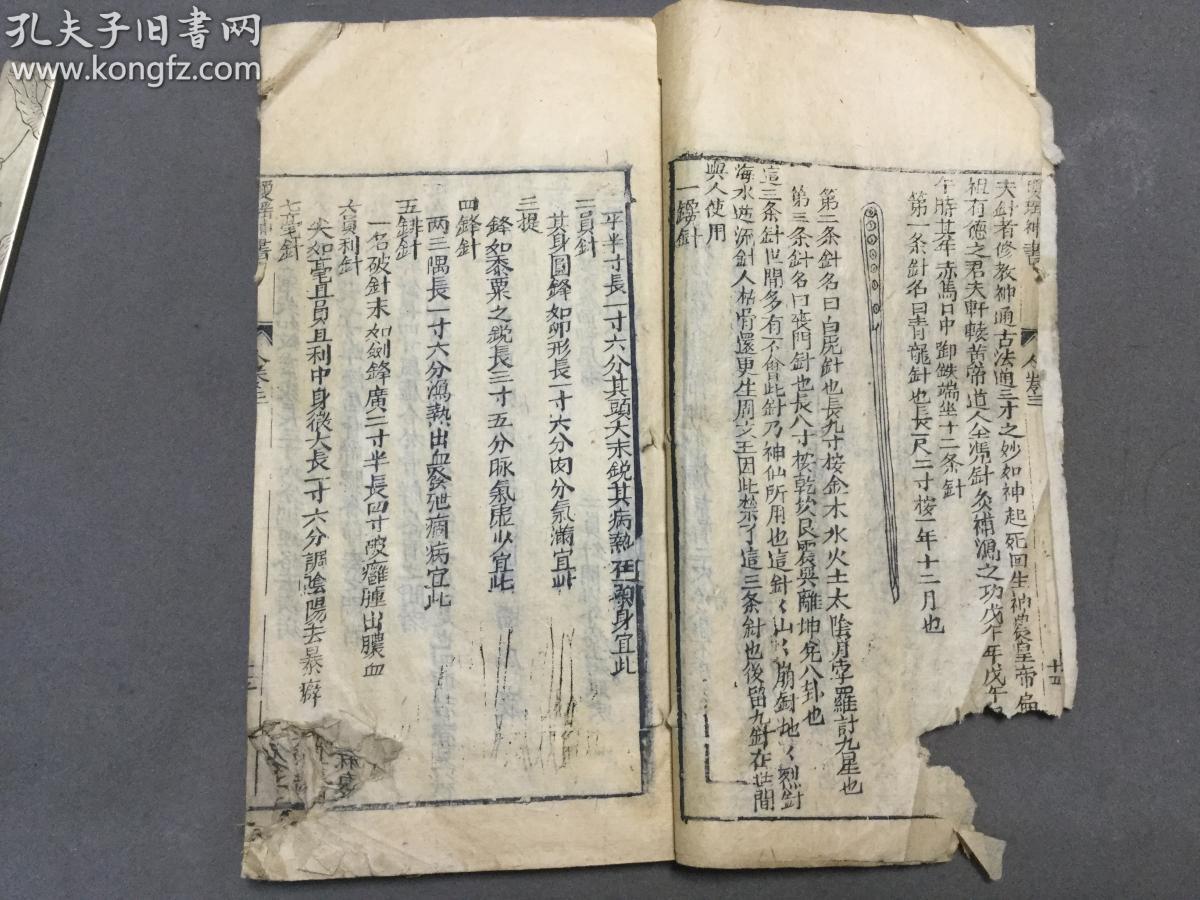 孔夫子旧书网
www.kongfz.com
瓊瑤神書
人卷三
夫針者修教神通古法通三才之妙如神起死回生神農皇帝扁
祖有德之君夫軒轅黃帝道人全憑針灸補瀉之功戊午年戊午
午時其年赤馬口中卸鉄端坐十二条針
第一条針名曰青龍針也長一尺二寸按一年十二月也
第二条針名曰白虎針也長九寸按金木水火土太陰月孛羅計九星也
第三条針名曰喪門針也長八寸按乾坎艮震巽離坤兌八卦也
這三条針世間多有不會此針乃神仙所用也這針〻山〻崩針地〻烈針
海水逆流針人枯骨還更生周文王因此禁了這三条針也後留九針在世間
與人使用
一鑱針
平半寸長一寸六分其頭大末銳其病熱在頭身宜此
二員針
其身圓鋒如卵形長一寸六分肉分氣滿宜此
三提
鋒如黍粟之銳長三寸五分脉氣虛少宜此
四鋒針
两三隅長一寸六分瀉熱出血發泄痼病宜此
五鈹針
一名破針末如劍鋒廣二寸半長四寸破癰腫出膿血
六員利針
尖如毫且員且利中身微大長一寸六分調陰陽去暴痺
七毫針
瓊瑤神書
人卷三